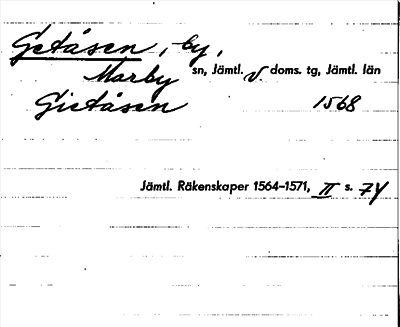 Getåsen, by,
Marby sn, Jämtl. V. doms. tg, Jämtl. län
Gietåsen 1568
Jämtl. Räkenskaper 1564–1571, II s. 74